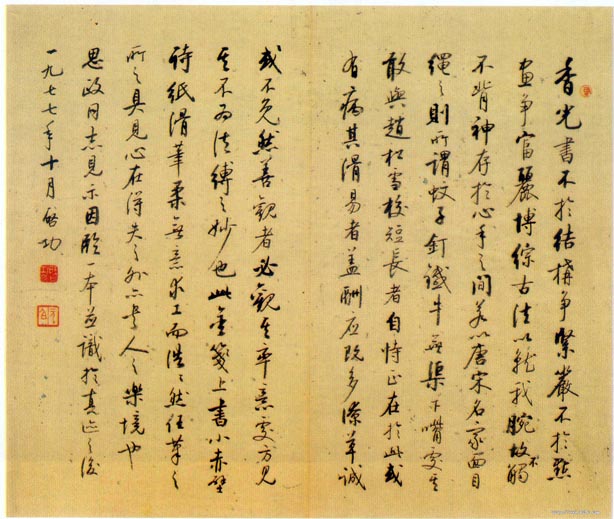 香光書不於結構爭緊嚴不於點
畫爭富麗博綜古法以就我腕故不觸
不背神存於心手之間若以唐宋名家面目
繩之則所謂蚊子釘鐵牛無渠下嘴處其
敢與趙松雪校短長者自恃正在於此或
有病其滑易者蓋酬應既多潦草誠
或不免然善觀者必觀其率意處方見
其不為法縛之妙也此金箋上書小赤壁
詩紙滑筆柔無意求工而浩浩然任筆之
所之具見心在得失之外亦老人之樂境也
思政同志見示因臨一本並識於真跡之後
一九七七年十月啟功